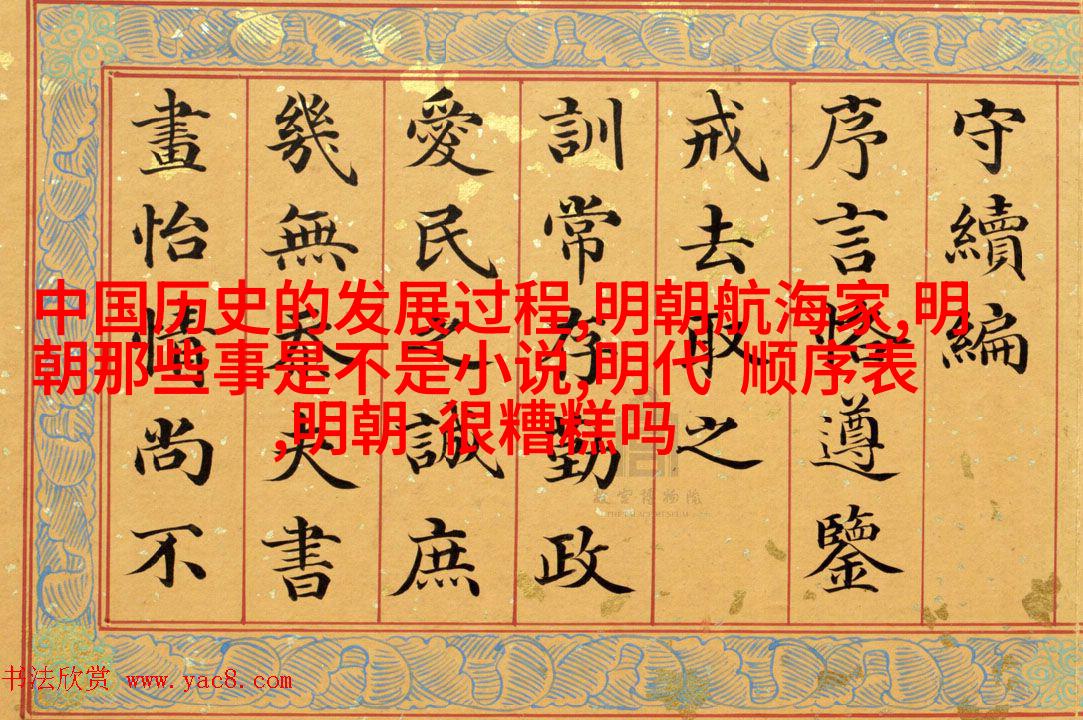 守續編
序言恪遵鑒
戒去取之
訓常存勤政
愛民之誠庶
幾無忝夫書
畫怡情尚不
中国历史的发展过程,明朝航海家,明
朝那些事是不是小说,明代 顺序表
,明朝 很糟糕吗
故宫博物院
THE PALACE MUSEUM
书法欣赏 www.yac8.com